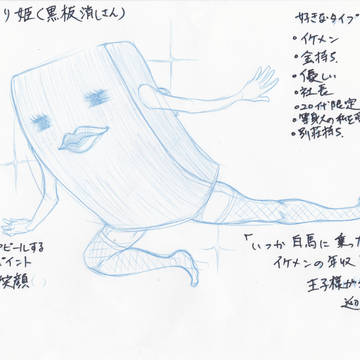 り姫(黒板消しさん)
好きなタイプ
・イケメン
・金持ち
・優しい
・社長
・20代限定
・別荘持ち
アピールする
ポイント
笑顔
「いつか白馬に乗った
イケメンの年収
王子様が